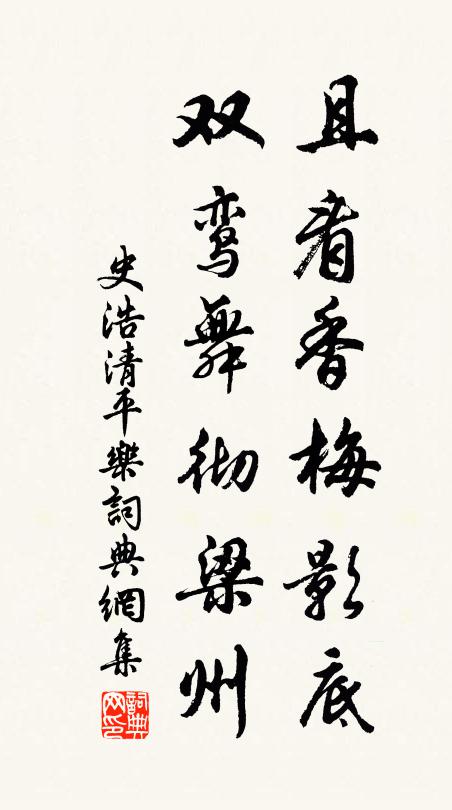 且看香梅影底
双鸾舞彻梁州
史浩清平樂詞典網集
詞典网印